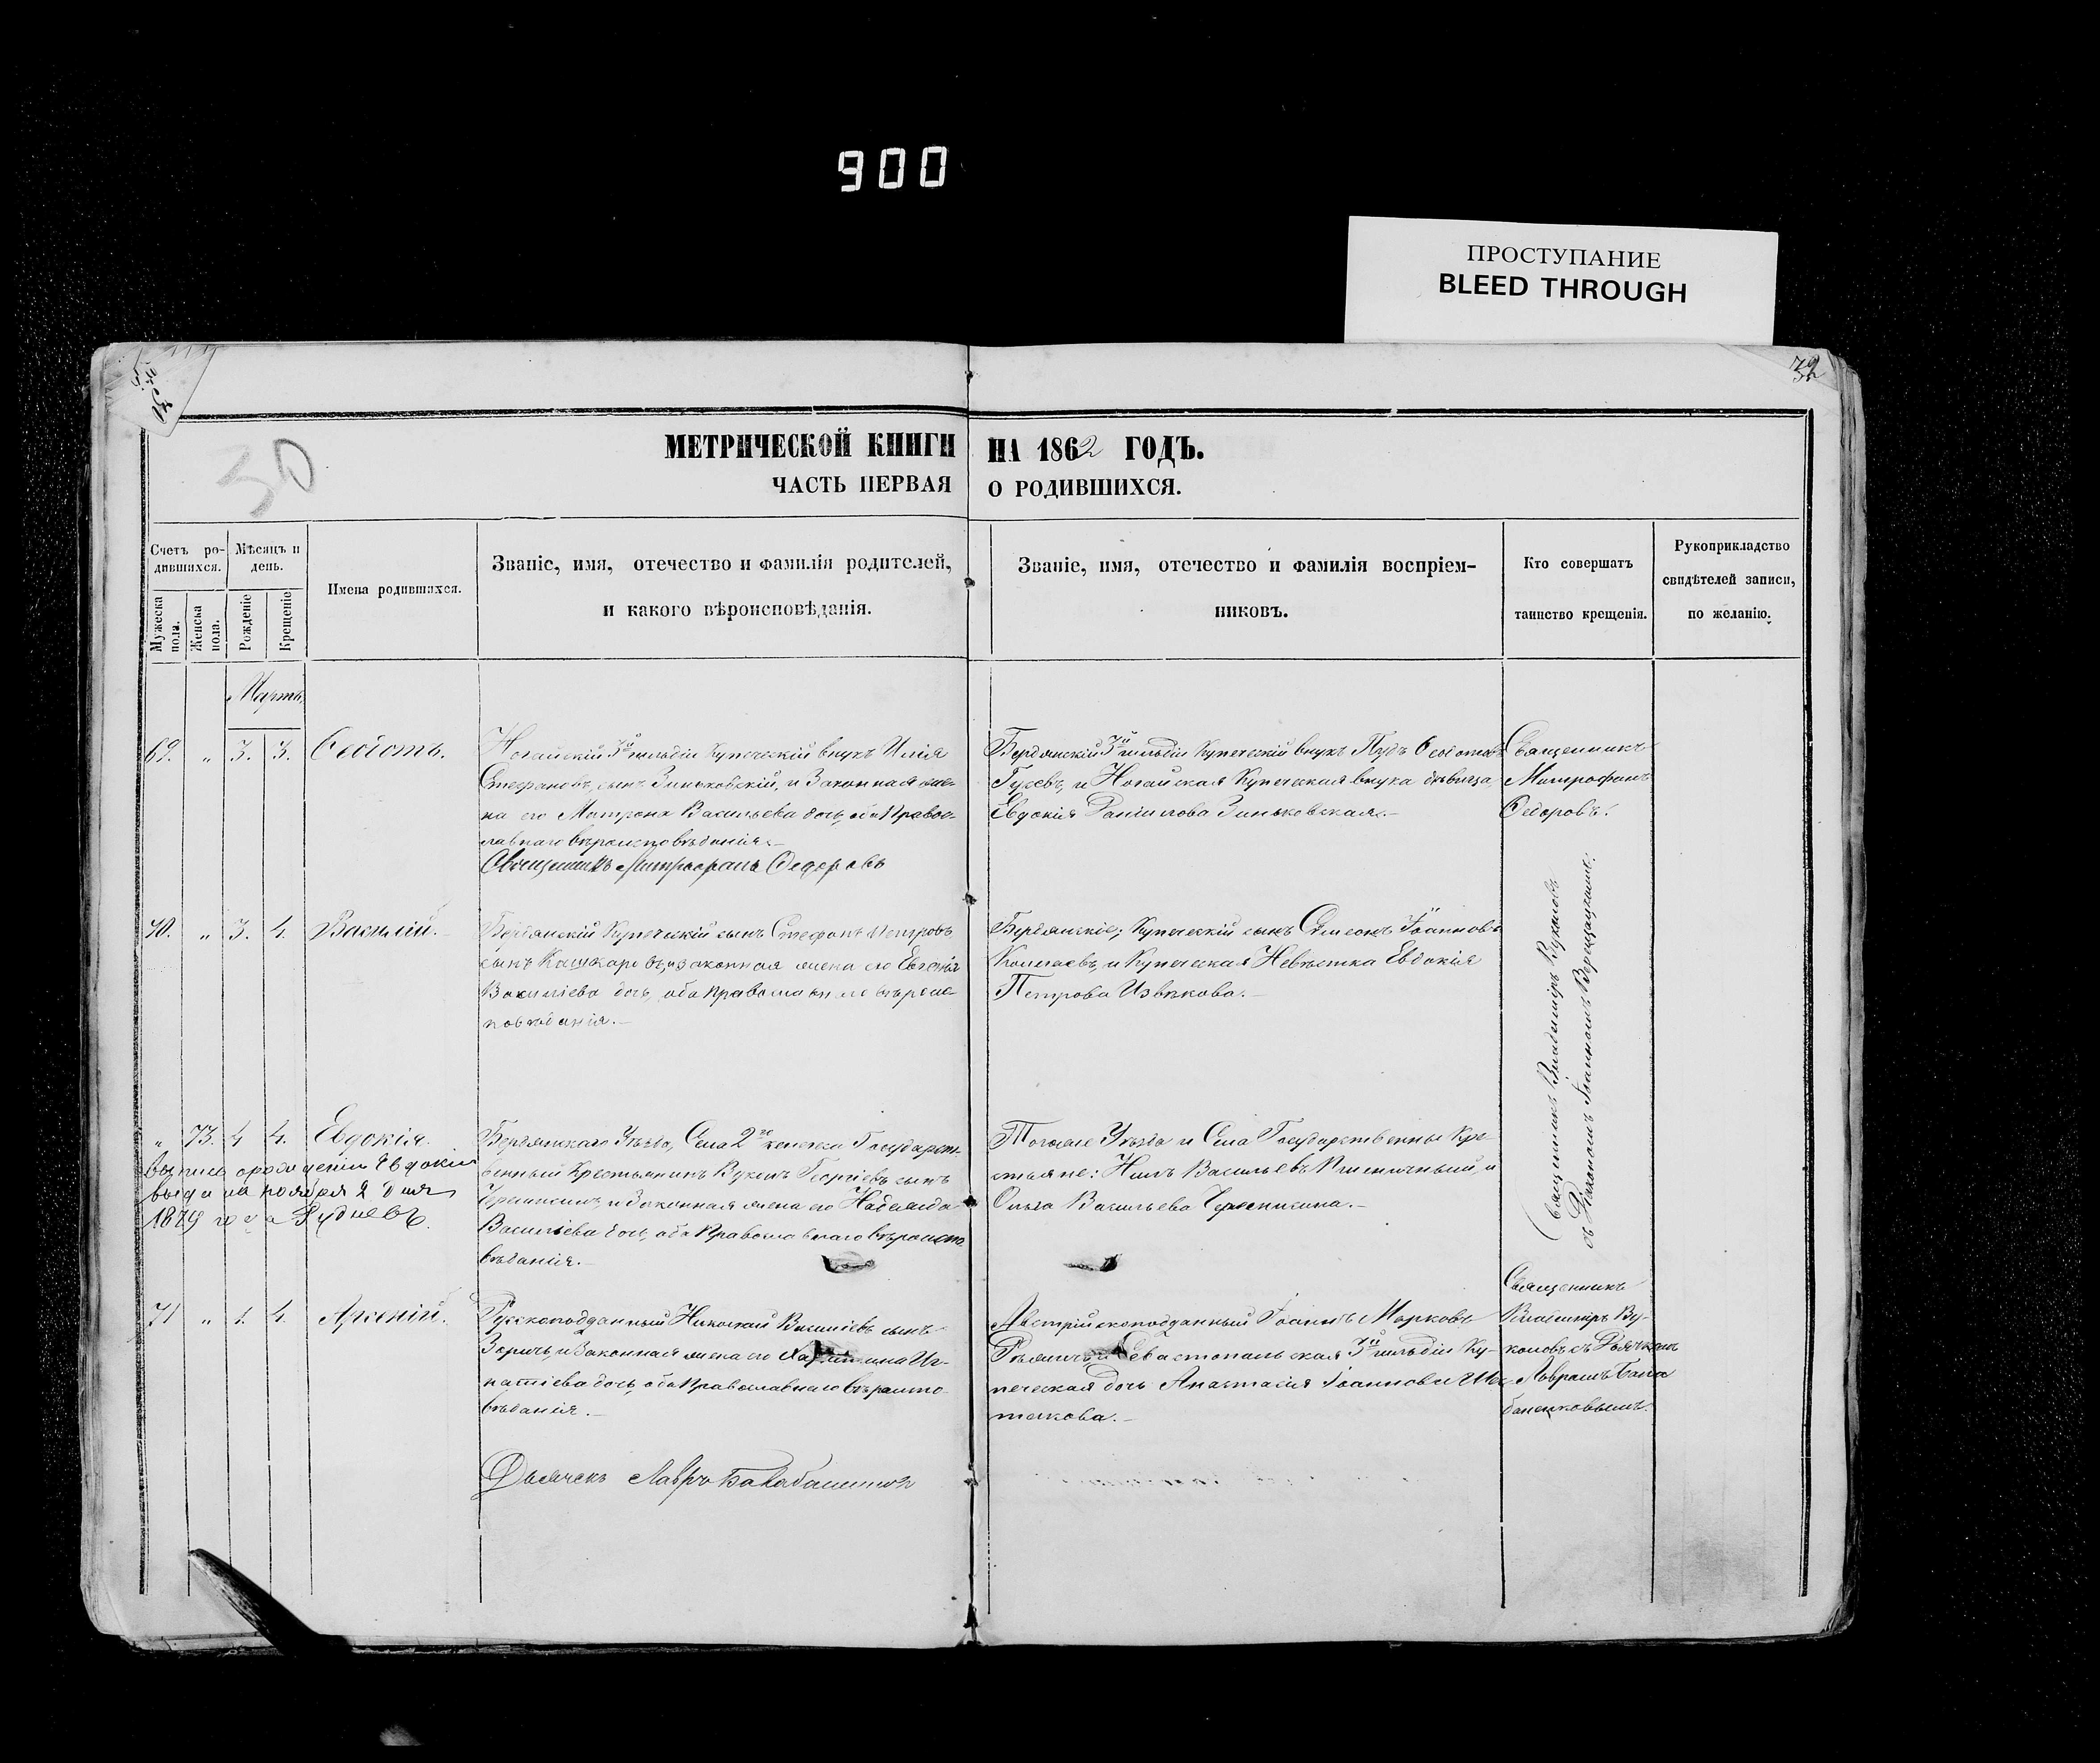 900
ПРОСТУПАНИЕ
BLEED THROUGH
32
30
МЕТРИЧЕСКОЙ КНИГИ НА 1862 ГОДЪ.
ЧАСТЬ ПЕРВАЯ О РОДИВШИХСЯ.
Счетъ ро-
дившихся.
Мѣсяцъ и
день.
Мужеска
пола.
Женска
пола.
Рожденіе
Крещеніе
Имена родившихся.
Званіе, имя, отечество и фамилія родителей,
и какого вѣроисповѣданія.
Званіе, имя, отечество и фамилія воспріем-
никовъ.
Кто совершатъ
таинство крещенія.
Рукоприкладство
свидѣтелей записи,
по желанію.
Мартъ
69. " 3. 3. Ѳеоѳотъ.
Ногайскій 3й гильдіи Купеческій внукъ Илія
Стефановъ сынъ Зиньковскій, и Законная же-
на его Матрона Васильева дочь, оба Правос-
лавнаго вѣроисповѣданія.-
Священникъ Митрофанъ Ѳедоровъ
Бердянскій 3й гильдіи Купеческій внукъ Пудъ Ѳеодотовъ
Гусевъ, и Ногайская Купеческая внука дѣвица
Евдокія Даніилова Зиньковская.-
Священникъ
Митрофанъ
Ѳедоровъ.
70. " 3. 4. Василій.
Бердянскій Купеческій сынъ Стефанъ Петровъ
сынъ и законная жена его Евгенія
Василіева дочь, оба Православнаго вѣроис-
повѣданія.-
Бердянскіе; Купеческій сынъ Симеонъ Іоанновъ
и Купеческая Невѣстка Евдокія
Петрова Извѣкова.-
Священникъ Владиміръ Вуколовъ
съ Діакономъ Іоанномъ Верещацкимъ.
" 73. 4 4. Евдокія.
выпись о рождении Евдокии
выдана ноября 2 дня
1879 года Рудневъ.
Бердянскаго Уѣзда, Села 2го Государст-
венный Крестьянинъ Вуколъ Георгіевъ сынъ
и Законная жена его Надежда
Василіева дочь, оба Православнаго вѣроиспо-
вѣданія.-
Тогоже Уѣзда и Села Государственные Кре-
стьяне: Нилъ Васильевъ Пшеничный, и
Ольга Васильева
71 " 4. 4. Арсеній.
Русскоподданный Николай Василіевъ сынъ
Зоричъ, и Законная жена его Иг-
натіева дочь, оба Православнаго вѣроиспо-
вѣданія.-
Австрійскоподданный Іоаннъ Марковъ
и Севастопольская 3й гильдіи Ку-
печеская дочь Анастасія Іоаннова
Священникъ
Владиміръ Ву-
коловъ съ Дьячкомъ
Лавромъ Бала
баненковымъ.
Дьячекъ Лавръ Балабаненков